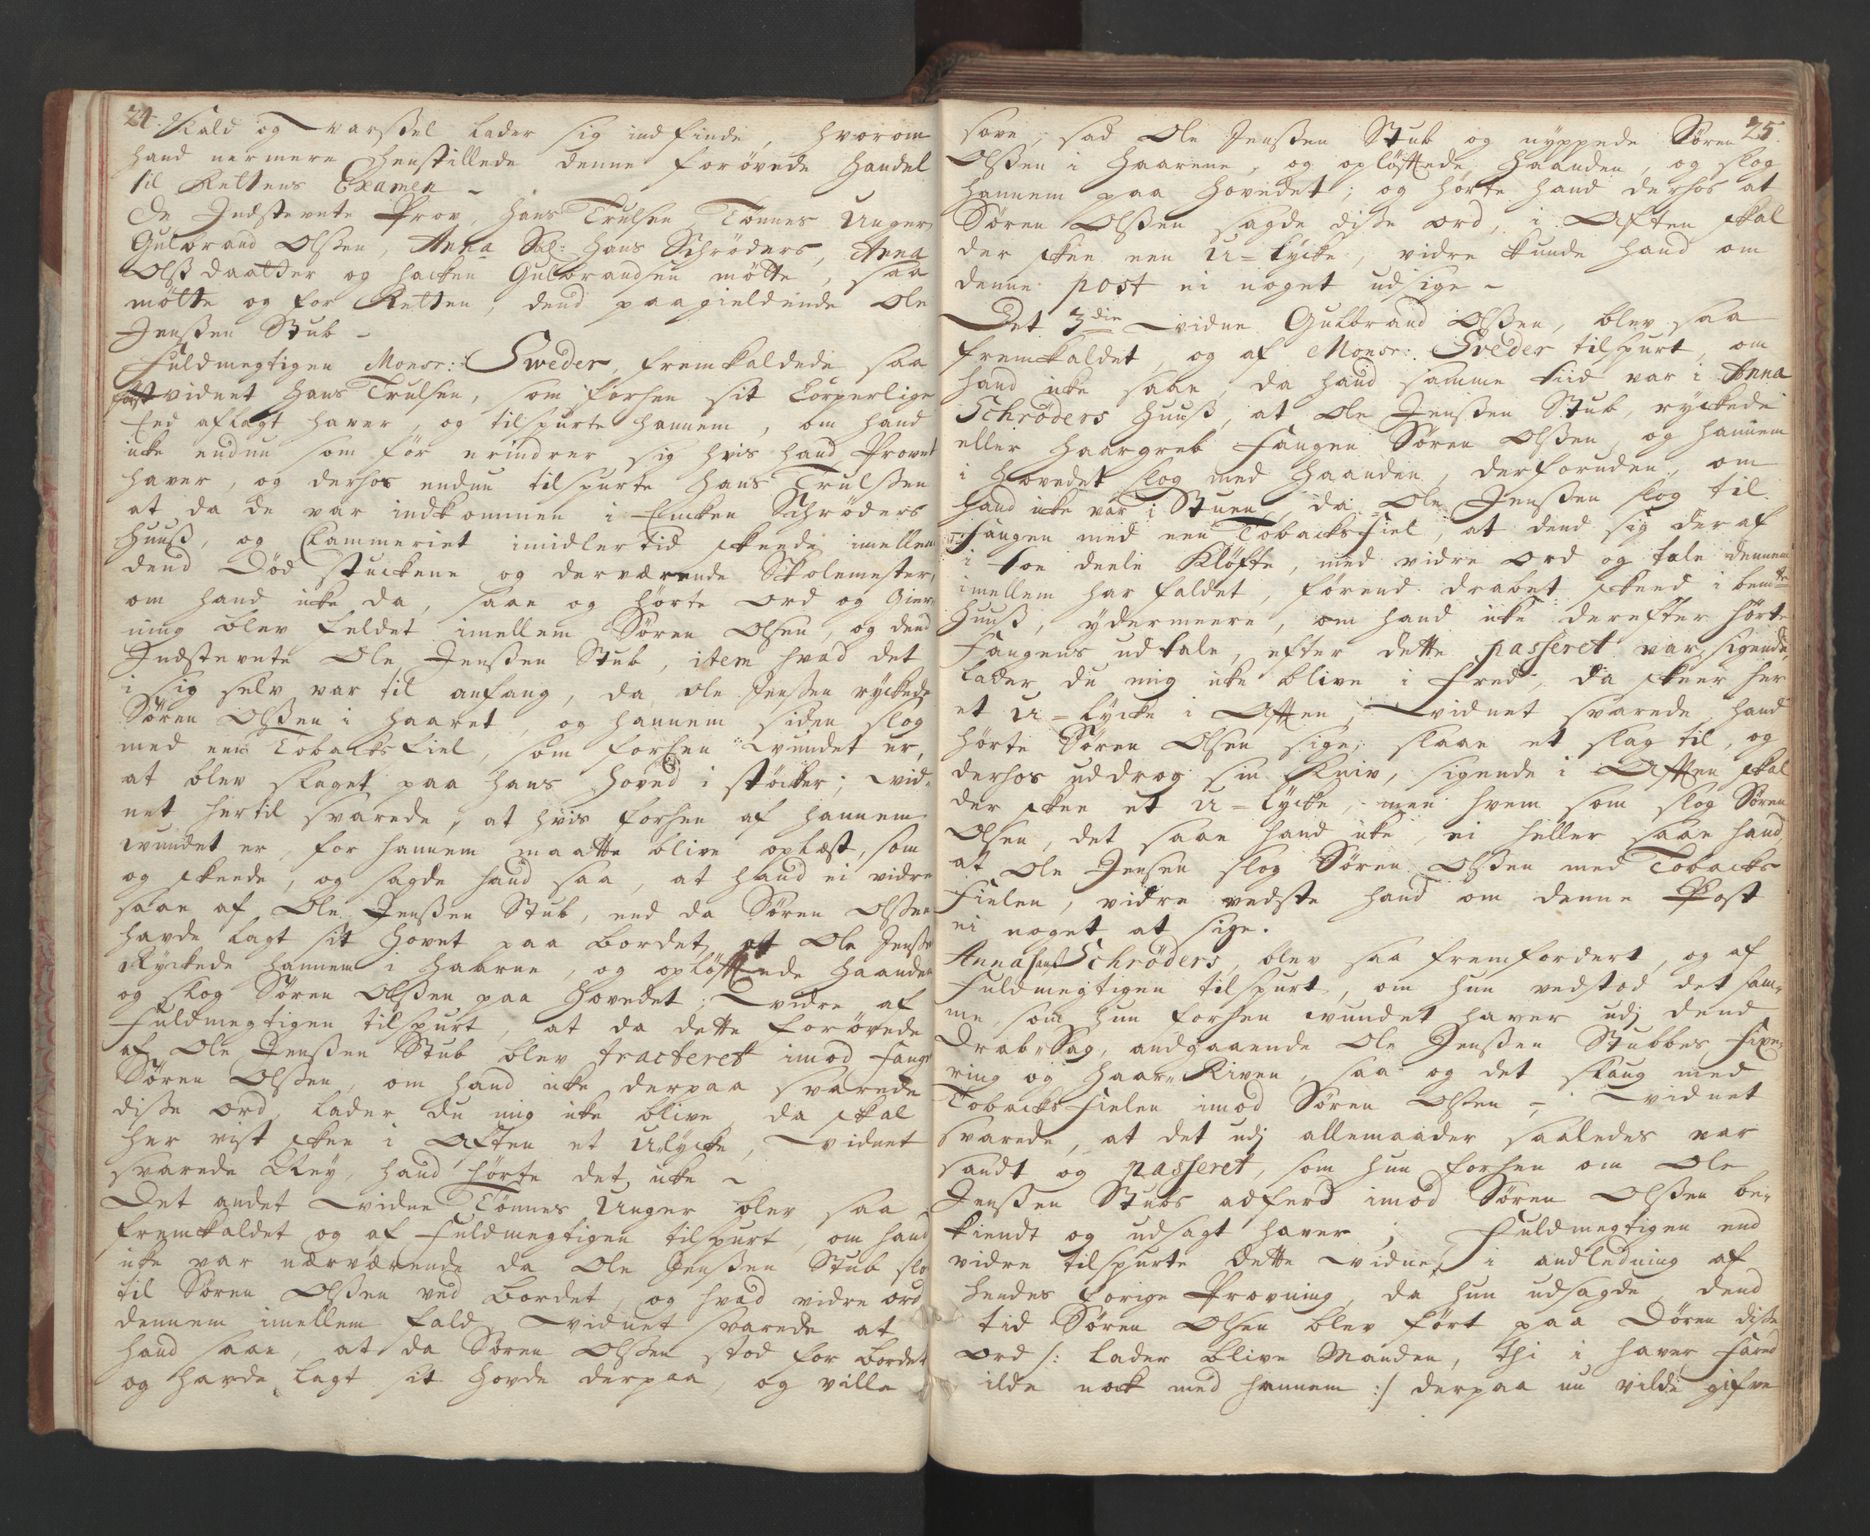 24.
Kald og Warßel lader sig indfinde, hvorom
hand nermere henstillede denne forøvede handel
til Rettens Examen –
De Indstevnte Prov, Hans Trulsen Tønnes Unger,
Gulbrand Olßen, Anna Sal: Hans Schrøders, Anna
Olß daatter og Hacken Gulbrandsen møtte, saa
møtte og for Retten, dend paagieldende Ole
Jenßen Stub –
Fuldmegtigen Monsr: Sweder, fremkaldede saa
først vidnet Hans Trulsen, som forhen sit Corperlige
Eed aflagt haver, og tilspurte hannem, om hand
icke endnu som før erindrer sig hvis hand Provet
haver, og derhos endnu tilspurte Hans Trulßen
at da de var indkommen i Encken Schrøders
Huuß, og Clammeriet imidlertid skeede imellem
dend Død stuckene og derværende Skolemester,
om hand icke da, saae og hørte ord og Gier-
ning blev feldet imellem Søren Olsen, og dend
Indstevnte Ole Jenßen Stub, item hvad det
i sig selv var til anfang, da Ole Jenßen ryckede
Søren Olßen i haaret, og hannem siden slog
med een Tobacks fiel, som forhen wundet er,
at blev slaget paa hans hoved i støcker; Vid-
net hertil svarede, at hvis forhen af hannem
wundet er, for hannem maatte blive oplæst, som
og skeede, og sagde hand saa, at hand ei vidre
saae af Ole Jenßen Stub, end da Søren Olßen
havde lagt sit Hovet paa bordet, at Ole Jenßen
Ryckede hannem i Haarene, og opløfftede Haanden
og slog Søren Olßen paa Hovedet; Vidre af
Fuldmegtigen tilspurt, at da dette forøvede
af Ole Jenßen Stub blev tracteret imod Fangen
Søren Olßen, om hand icke derpaa svarede
diße ord, lader du mig icke blive, da skal
her vist skee i Aften et Ulycke, Vidnet
svarede Ney, hand hørte det icke –
Det andet Vidne Tønnes Unger blev saa
fremkaldet og af Fuldmegtigen tilspurt, om hand
icke var nærværende da Ole Jenßen Stub slog
til Søren Olßen ved bordet, og hvad vidre ord
dennem imellem fald, Vidnet svarede at
hand saae, at da Søren Olßen stod for bordet
og havde lagt sit Hovde derpaa, og ville
25.
sove, sad Ole Jenßen Stub og nyppede Søren
Olßen i Haarene, og opløfftede Haanden, og slog
hannem paa Hovedet; og hørte hand derhos at
Søren Olßen sagde diße ord, i Aften skal
der skee een U=lycke, vidre kunde hand om
denne post ei noget udsige –
Det 3die Vidne Gulbrand Olßen, blev saa
fremkaldet og af Monsr: Sveder tilspurt, om
hand icke saae, da hand samme tiid var i Anna
Schrøders Huuß, at Ole Jenßen Stub, ryckede
eller haargreb Fangen Søren Olßen, og hannem
i Hovedet slog med Haanden, derforuden, om
hand icke var i Stuen, da Ole Jenßen slog til
Fangen med een Tobacksfiel, at dend sig deraf
i toe deele Kløfte, med vidre ord og tale dennem
imellem har faldet, førend drabet skeed i bemte
Huuß, ydermeere, om hand icke derefter hørte
Fangens udtale, efter dette passeret var, sigende,
lader du mig icke blive i Fred, da skeer her
et U=lycke i Aften, Vidnet svarede, hand
hørte Søren Olsen sige, slaae et slag til, og
derhos uddrog sin Kniv, sigende i Aften skal
der skee et U=lycke, men hvem som slog Søren
Olsen, det saae hand icke ei heller saae hand,
at Ole Jensen slog Søren Olßen med Tobacks
Fielen, vidre vedste hand om denne Post
ei noget at sige.
Anna Hans Schrøders, blev saa fremfordert, og af
Fuldmegtigen tilspurt, om hun vedstod det sam-
me, som hun forhen wundet haver udj dend
Drab Sag, andgaaende Ole Jenßen Stubbes Fixe-
ring og Haar Riven, saa og det Slaug med
Tobacks Fielen imod Søren Olßen –, Vidnet
svarede, at det udj allemaader saaledes var
sandt og passeret, som hun forhen om Ole
Jenßen Stubs adferd imod Søren Olßen be-
kiendt og udsagt haver; Fuldmegtigen end
vidre tilspurte dette Vidne, i andledning af
hendes forige Provning, da hun udsagde, dend
tid Søren Olsen blev ført paa Døren diße
ord /: lader blive Manden, thi i haver Faret
ilde nock med hannem :/ derpaa nu vilde gifve